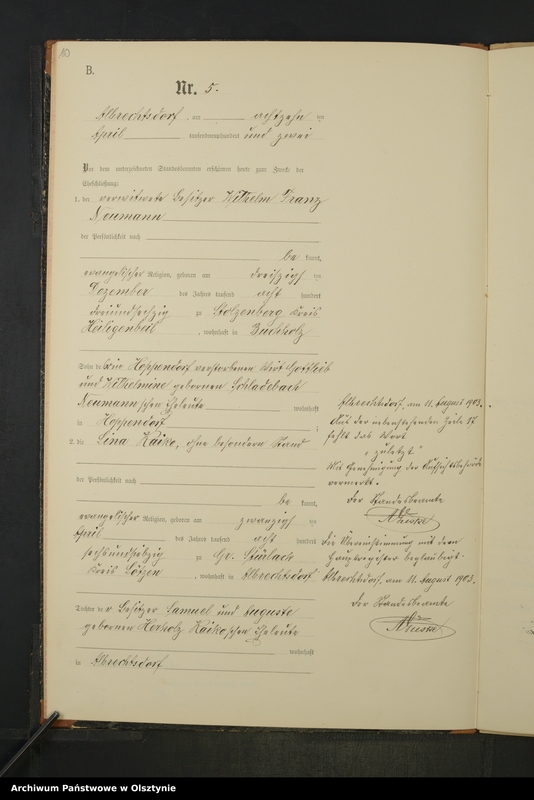 10
B.
Nr. 5.
Albrechtsdorf, am achtzehn ten
April tausendneunhundert und zwei
Vor dem unterzeichneten Standesbeamten erschienen heute zum Zwecke der
Eheschließung:
1. der verwitwete Besitzer Wilhelm Franz
Neumann
der Persönlichkeit nach
be kannt,
evangelischer Religion, geboren am dreißigs ten
Dezember des Jahres tausend acht hundert
dreiundsechzig zu Stolzenberg Kreis
Heiligenbeil, wohnhaft in Buchholz
Sohn des in Hoppendorf verstorbenen Wirt Gottlieb
und Wilhelmine geborenen Schladebach
Neumannschen Eheleute wohnhaft
in Hoppendorf ;
2. die Lina Kaiko, ohne besondern Stand
der Persönlichkeit nach
be kannt,
evangelischer Religion, geboren am zwanzigs ten
April des Jahres tausend acht hundert
sechsundsiebzig zu Gr. Stürlack
Kreis Lötzen, wohnhaft in Albrechtsdorf
Tochter des Besitzer Samuel und Auguste
geborenen Kaikoschen Eheleute
wohnhaft
in Albrechtsdorf
Albrechtsdorf, am 11. August 1903.
Auf der nebenstehenden Zeile 17
fehlt das Wort
"zuletzt"
Mit Genehmigung der Aufsichtsbehörde
vermerkt.
Der Standesbeamte
Die Übereinstimmung mit dem
Hauptregister beglaubigt.
Albrechtsdorf, am 11. August 1903.
Der Standesbeamte
Archiwum Państwowe w Olsztynie